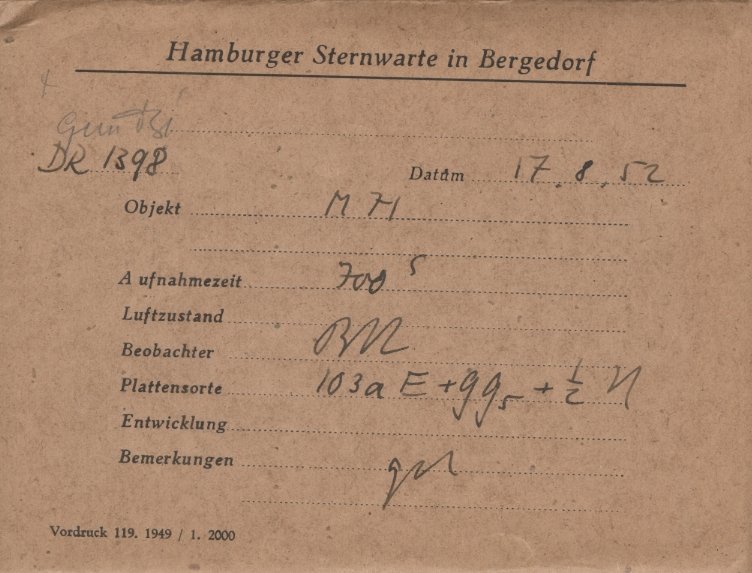 Hamburger Sternwarte in Bergedorf
DR 1398
Datum 17.8.52
Objekt M 71
Aufnahmezeit 700 s
Luftzustand
Beobachter
Plattensorte 103a E + gg5 + 1/2 N
Entwicklung
Bemerkungen gut
Vordruck 119. 1949 / 1. 2000